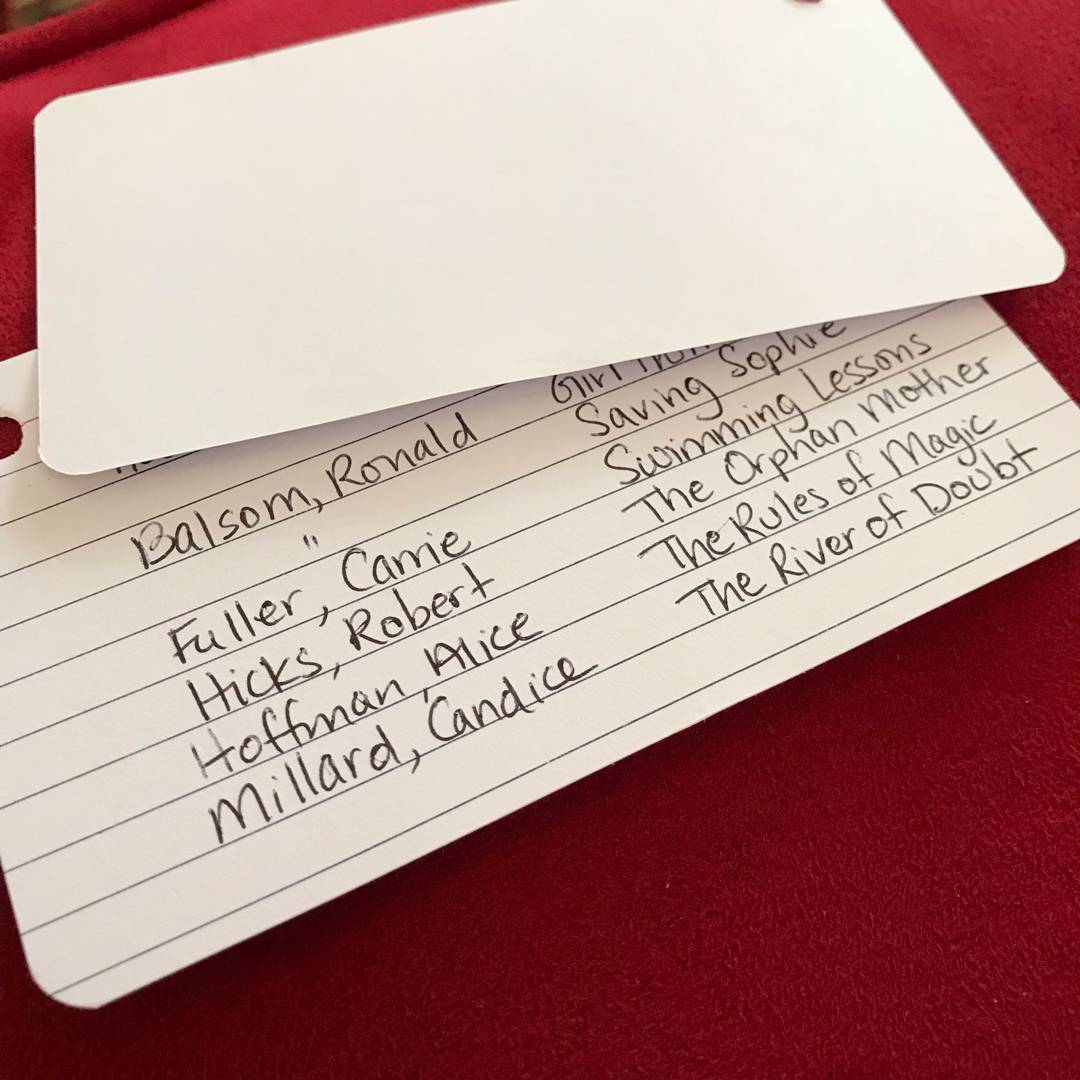 Balsom, Ronald Girl
" Saving Sophie
Fuller, Carrie Swimming Lessons
Hicks, Robert The Orphan Mother
Hoffman, Alice The Rules of Magic
Millard, Candice The River of Doubt